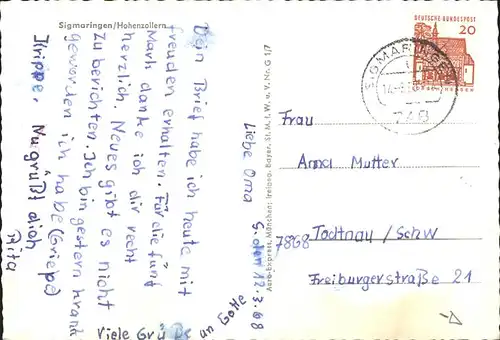 Sigmaringen/Hohenzollern
S. den 12.3.68
Liebe Oma
Dein Brief habe ich heute mit
freuden erhalten. Für die fünf
Mark danke ich dir recht
herzlich. Neues gibt es nicht
zu berichten. Ich bin gestern krank
geworden ich habe (Griepe)
Krippe. Nu grüßt dich
Rita
Viele Grüße an Gotte
Aero-Express, München: Freigeg. Bayer. St. M. f. W. u. V. Nr. G
DEUTSCHE BUNDESPOST
20
SIGMARINGEN
748
Frau
Anna Mutter
7868 Todtnau/Schw
Freiburgerstraße 21